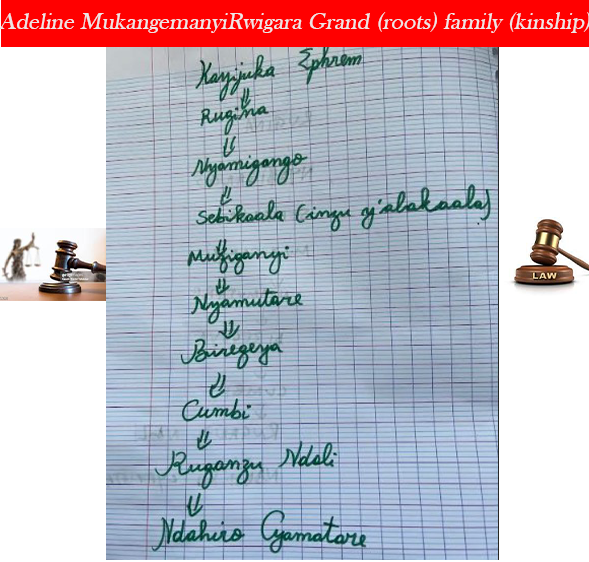 Adeline MukangemanyiRwigara Grand (roots) family (kinship)
Kayijuka Ephrem
Rugina
Nyamigango
Sebikaala (inzu y'abakaala)
Muziganyi
Nyamutare
Biregeya
Cumbi
Ruganzu Ndoli
Ndahiro Cyamatare
LAW